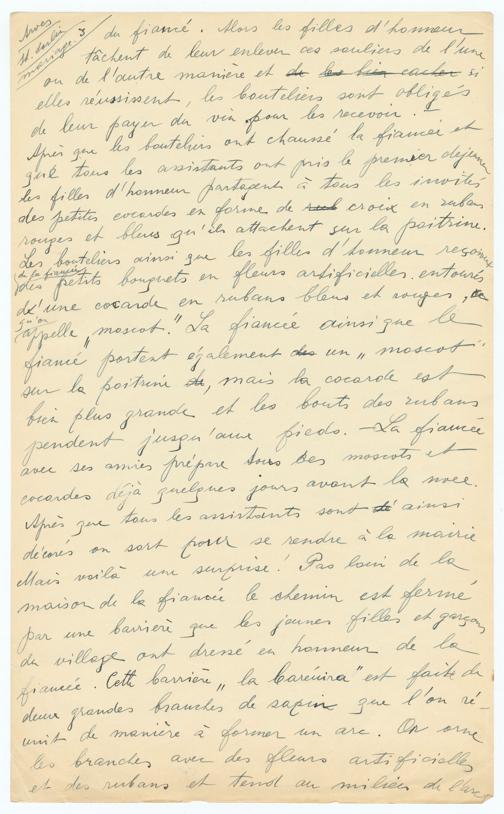 Arves
St. Sorlin
mariage 3
du fiancé. Alors les filles d'honneur
tâchent de leur enlever ces souliers de l'une
ou de l'autre manière et de les bien cacher si
elles réussissent, les bouteliers sont obligés
de leur payer du vin pour les recevoir. –
Après que les bouteliers ont chaussé la fiancée et
que tous les assistants ont pris le premier déjeuner
les filles d'honneur partagent à tous les invités
des petits cocardes en forme de croix en rubans
rouges et bleus qu'ils attachent sur la poitrine.
Les bouteliers ainsi que les filles d'honneur reçoivent
de la fiancée
des petits bouquets en fleurs artificielles entourés
d'une cocarde en rubans bleus et rouges,
qu'on
appelle „moscot." La fiancée ainsi que le
fiancé portent également des un „moscot"
sur la poitrine, mais la cocarde est
bien plus grande et les bouts des rubans
pendent jusqu'aux pieds. – La fiancée
avec ses amies prépare tous les moscots et
cocardes déjà quelques jours avant la noce.
Après que tous les assistants sont ainsi
décorés on sort pour se rendre à la mairie
Mais voilà une surprise! Pas loin de la
maison de la fiancée le chemin est fermé
par une barrière que les jeunes filles et garçons
du village ont dressé en honneur de la
fiancée. Cette barrière „la baréuira" est faite de
deux grandes branches de sapin que l'on ré-
unit de manière à former un arc. On orne
les branches avec des fleurs artificielles
et des rubans et tend au milieu de l'arc